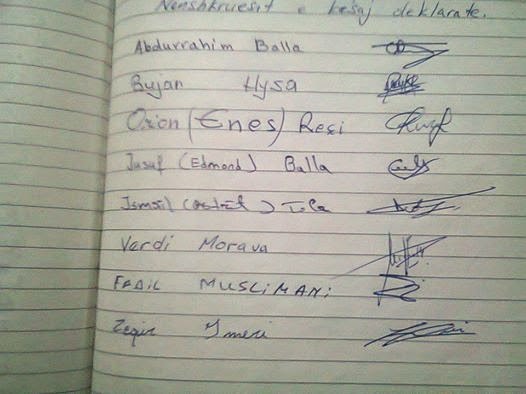 Nenshkruesit e kesaj deklarate.
Abdurrahim Balla
Bujar Hysa
Orion (Enes) Reçi
Jusuf (Edmond) Balla
Ismail ( ) Tola
Verdi Morava
FADIL MUSLIMANi
Zeqir Imeri